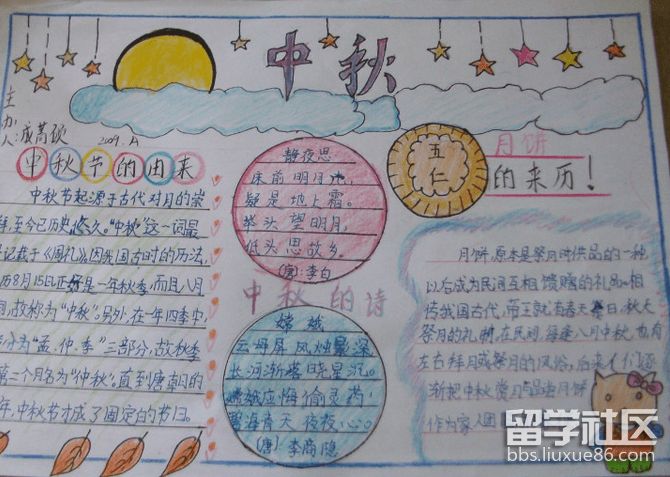 中秋
主办人:成蒿硕
2009.
中秋节的由来
中秋节起源于古代对月的崇
拜,至今已历史悠久。"中秋"这一词最
记载于《周礼》,因我国古时的历法,
历8月15日正好是一年秋季,而且八月
间,故称为"中秋"。另外,在一年四季中,
分为"孟、仲、季"三部分,故秋季
第二个月名为"仲秋",直到唐朝的
年,中秋节才成了固定白的节日。
静夜思
床前明月光,
疑是地上霜。
举头望明月,
低头思故乡。
(唐):李白
中秋的诗
嫦娥
云母屏风烛影深
长河渐落晓星沉。
嫦娥应悔偷灵药,
碧海青天夜夜心。
(唐):李商隐
五仁
月饼
的来历!
月饼,原本是祭月时供品的一种
以后成为民间互相馈赠的礼品。相
传我国古代,帝王就有春天祭日,秋天
祭月的礼制,在民间,每逢八月中秋,也有
左右拜月或祭月的风俗,后来人们逐
渐把中秋赏月与品尝月饼
作为家人团
留学社区
bbs.liuxue86.com